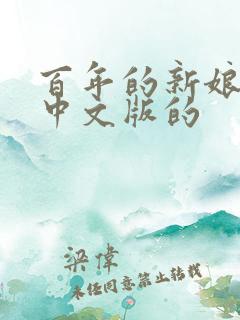 百年的新娘
中文版的
梁偉
未经同意禁止转载